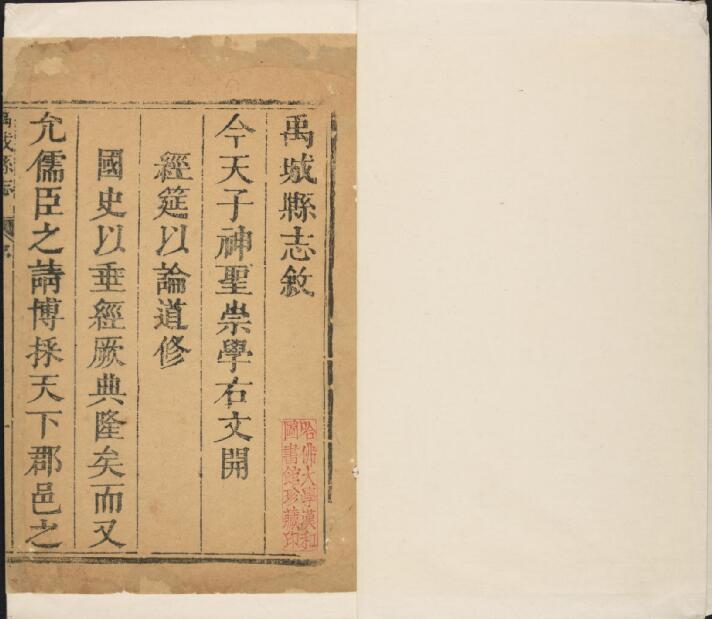 禹城縣志敘
今天子神聖崇學右文開
經筵以論道修
國史以垂經厥典隆矣而又
允儒臣之請博採天下郡邑之
哈佛大學漢和
圖書館珍藏印
禹城縣志